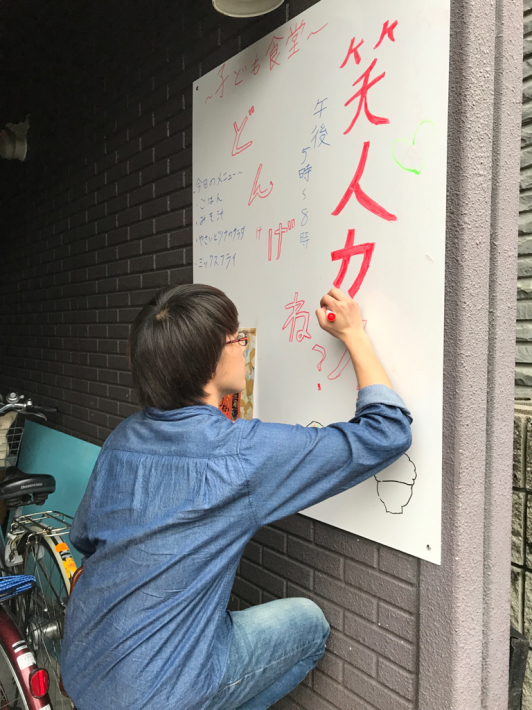 笑人カ
午後5時〜8時
〜子ども食堂〜
どんげ
ね?
今日のメニュー
・ごはん
・みそ汁
・ミックスフライ